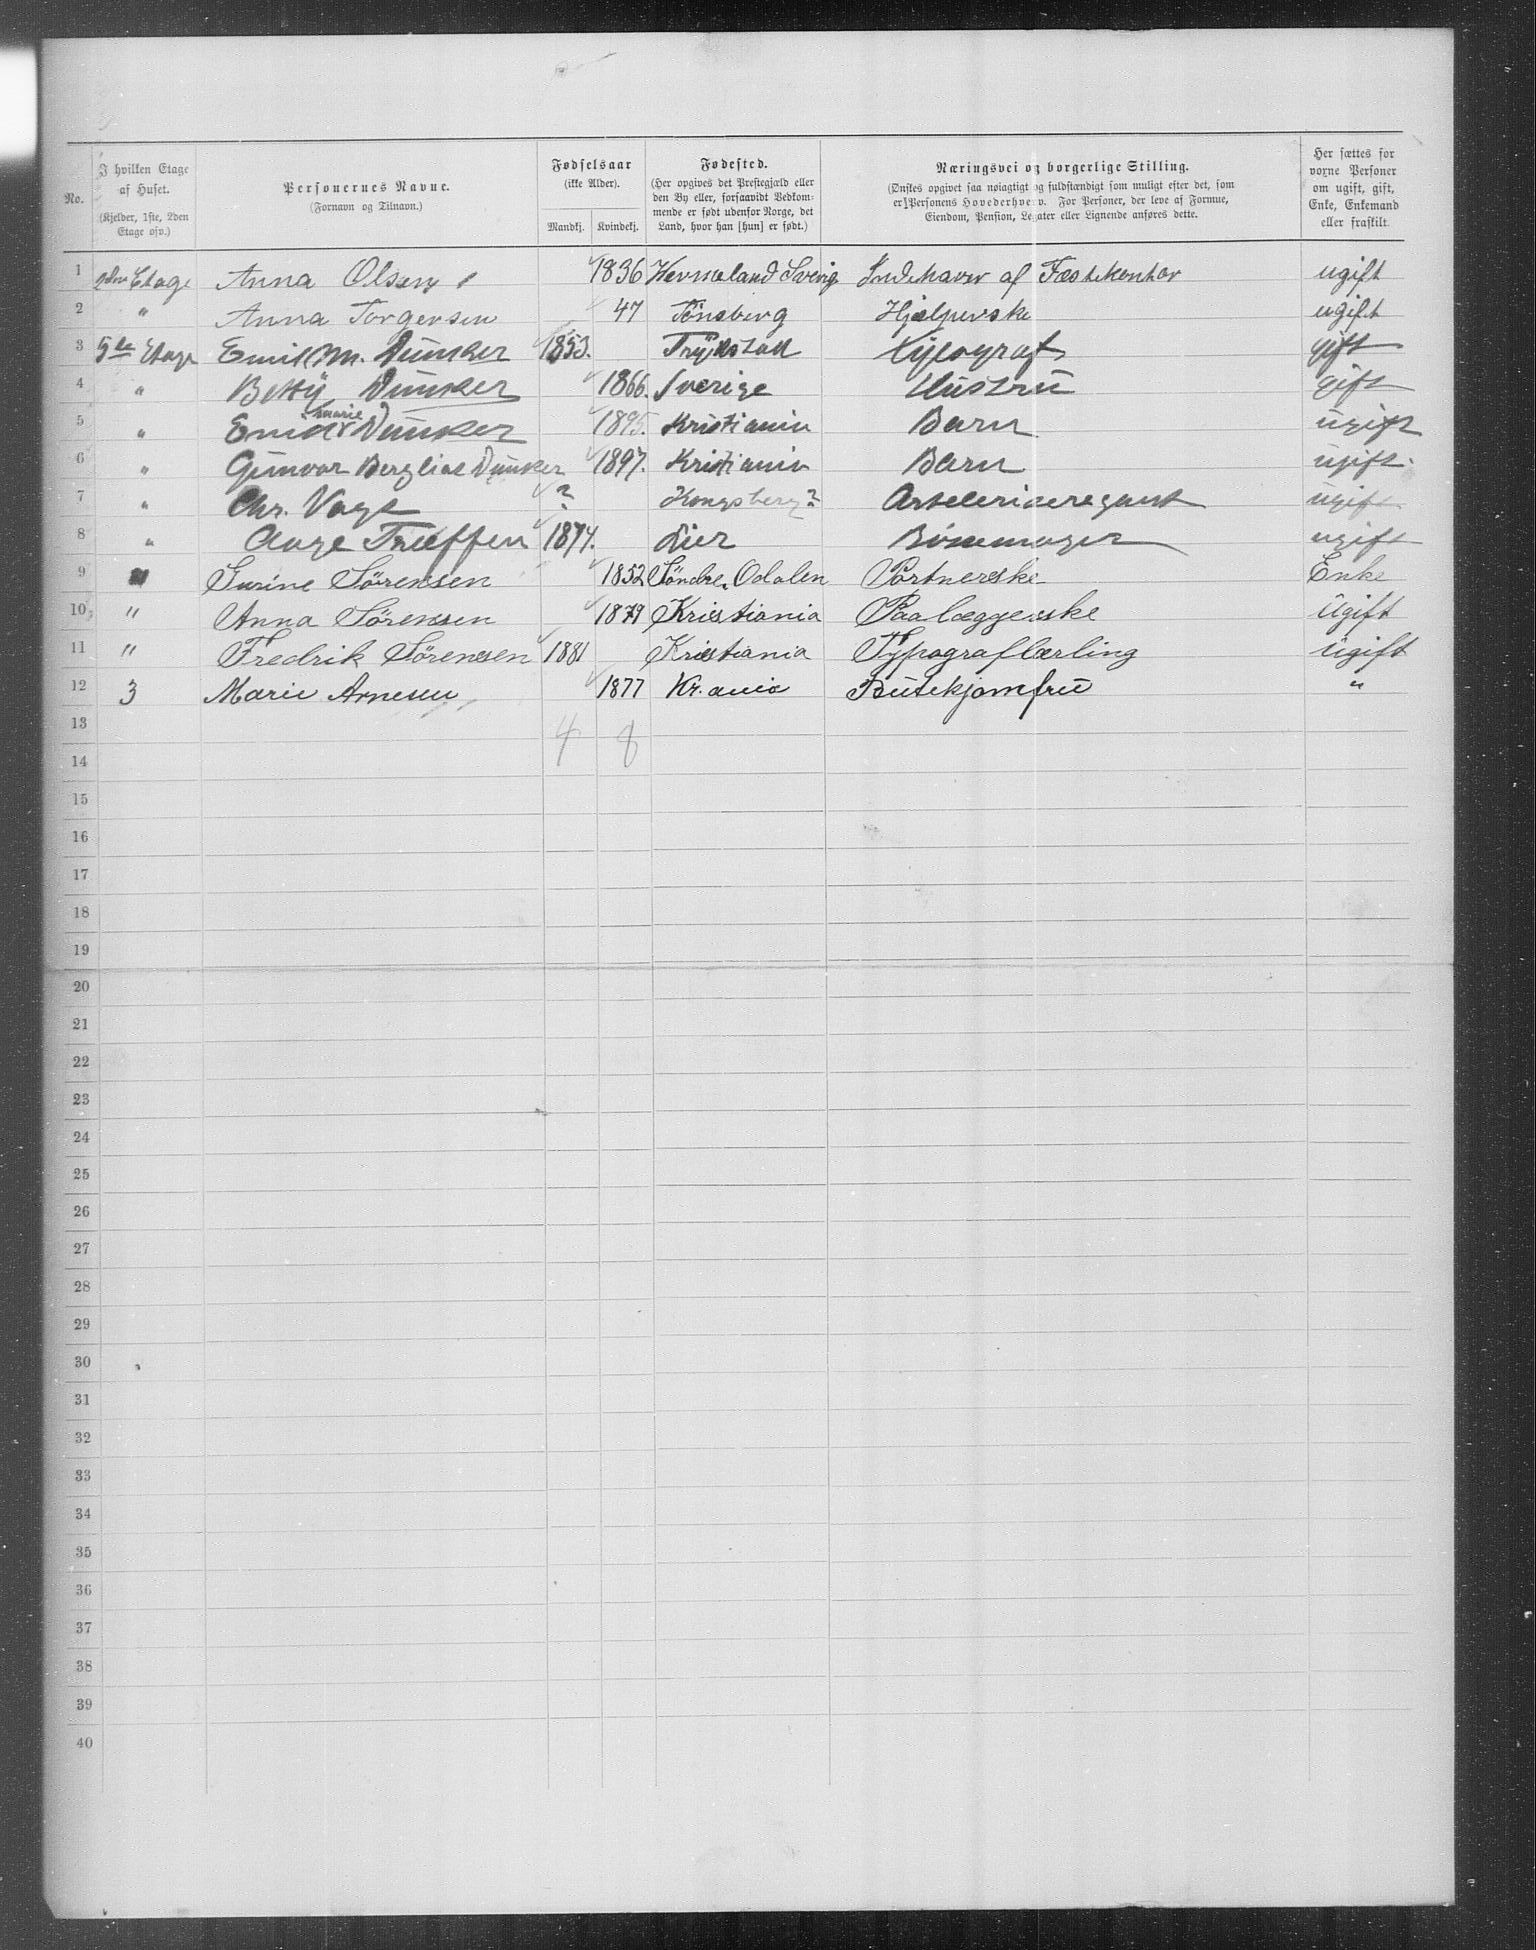 No. I hvilken Etage af Huset. (Kjelder, 1ste, 2den Etage osv.) Personernes Navne. (Fornavn og Tilnavn.) Fødselsaar (ikke Alder). Mandkj. Kvindekj. Fødested. (Her opgives det Prestegjæld eller den By eller, forsaavidt Vedkommende er født udenfor Norge, det Land, hvor han [hun] er født.) Næringsvei og borgerlige Stilling. (Ønskes opgivet saa nøiagtigt og fuldstændigt som muligt efter det, som er Personens Hovederhverv. For Personer, der leve af Formue, Eiendom, Pension, Legater eller Lignende anføres dette. Her sættes for voxne Personer om ugift, gift, Enke, Enkemand eller fraskilt.
1 2den Etage Anna Olsen 1836 Vermeland Sverig Indehaver af Fæstekontor ugift
2 " Anna Torgersen 47 Tönsberg Hjælperske ugift
3 5te Etage Emil M. Dunker 1853. Trykstad Typograf gift
4 " Betty Dunker 1866. Sverige Hustru gift
5 " Marie Dunker 1895. Kristiania Barn ugift
6 " Gunvor Bergliot Dunker 1897. Kristiania Barn ugift.
7 " Chr. Vogt ? Kongsberg? ugift
8 " Aage 1874. Lier ugift
9 " Surine Sörensen 1852 Söndre Odalen Portnerske Enke
10 " Anna Sörensen 1879 Kristiania Paalæggerske Ugift
11 " Fredrik Sörensen 1881 Kristiania Typograflærling Ugift
12 3 Marie Arnesen 1877 Kr.ania Butikjomfru "
13 4 8
14
15
16
17
18
19
20
21
22
23
24
25
26
27
28
29
30
31
32
33
34
35
36
37
38
39
40